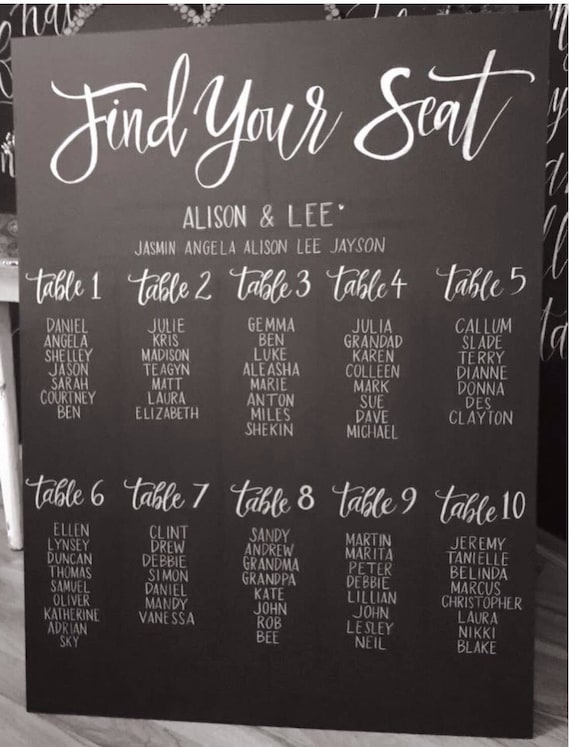 Find Your Seat
ALISON & LEE
JASMIN ANGELA ALISON LEE JAYSON
table 1
DANIEL
ANGELA
SHELLEY
JASON
SARAH
COURTNEY
BEN
table 2
JULIE
KRIS
MADISON
TEAGYN
MATT
LAURA
ELIZABETH
table 3
GEMMA
BEN
LUKE
ALEASHA
MARIE
ANTON
MILES
SHEKIN
table 4
JULIA
GRANDAD
KAREN
COLLEEN
MARK
SUE
DAVE
MICHAEL
table 5
CALLUM
SLADE
TERRY
DIANNE
DONNA
DES
CLAYTON
table 6
ELLEN
LYNSEY
DUNCAN
THOMAS
SAMUEL
OLIVER
KATHERINE
ADRIAN
SKY
table 7
CLINT
DREW
DEBBIE
SIMON
DANIEL
MANDY
VANESSA
table 8
SANDY
ANDREW
GRANDMA
GRANDPA
KATE
JOHN
ROB
BEE
table 9
MARTIN
MARITA
PETER
DEBBIE
LILLIAN
JOHN
LESLEY
NEIL
table 10
JEREMY
TANIELLE
BELINDA
MARCUS
CHRISTOPHER
LAURA
NIKKI
BLAKE